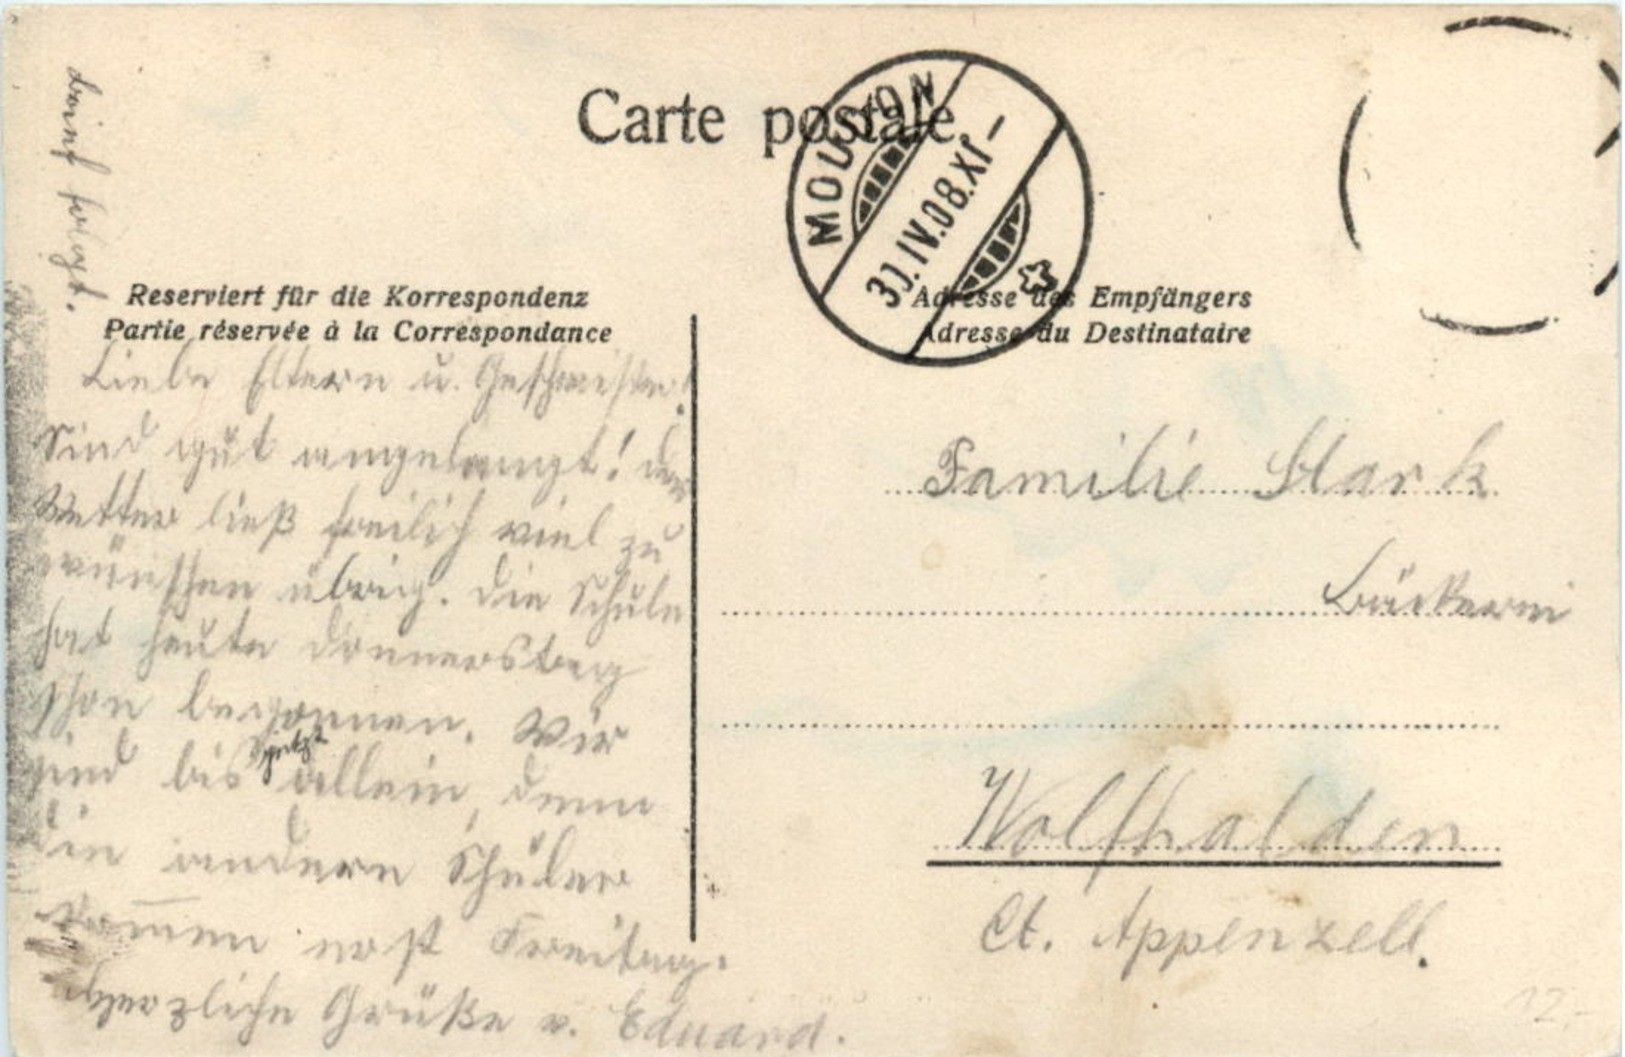 Brief folgt.
Carte postale
MOUDON
30.IV.08.XI-
Reserviert für die Korrespondenz
Partie réservée à la Correspondance
Adresse des Empfängers
Adresse du Destinataire
Liebe Eltern u. Geschwister!
Sind gut angelangt! Das
Wetter ließ freilich viel zu
wünschen übrig. Die Schule
hat heute Donnerstag
schon begonnen. Wir
sind bis jetzt allein, denn
die andern Schüler
kommen erst Freitag.
Herzliche Grüße v. Eduard.
Familie Stark
Bäckerei
Wolfhalden
Ct. Appenzell.
12.-